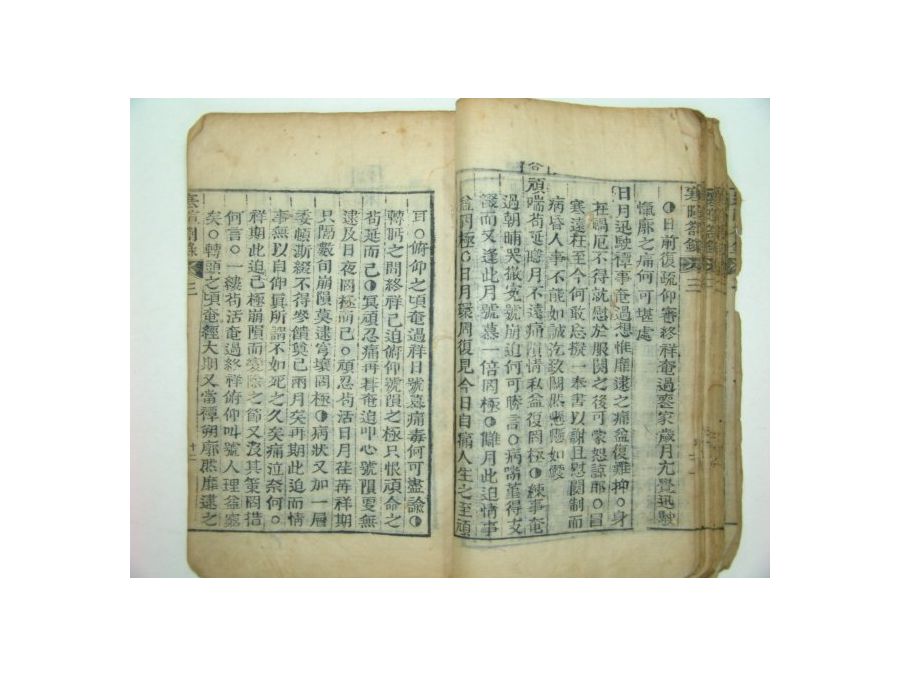 寒暄箚錄 三
日前復疏仰審終祥奄過喪家歲月尤覺迅駛
慨廓之痛何可堪處
日月迅駛禫事奄過想惟靡逮之痛益復難抑○身
在縞厄不得就慰於服闋之後可蒙恕諒耶○冒
寒遠枉至今何敢忘擬一奉書以謝且慰闋制而
病昏人事不能如誠迄玆闕然悲愧如噎
答 頑喘苟延練月不遠痛隕情私益復罔極○練事奄
過朝晡哭撤寃號崩迫何可勝言○病喘菫得支
綴而又逢此月號慕一倍罔極○雖月此迫情事
益罔極○日月環周復見今日自痛人生之至頑
耳○俯仰之頃奄過祥日號慕痛毒何可盡諭
轉眄之間終祥已迫俯仰號隕之極只恨頑命之
苟延而已○冥頑忍痛再朞奄迫叩心號隕憂無
逮及日夜罔極而已○頑忍苟活日月荏苒祥期
只隔數旬崩隕莫逮穹壤罔極 病狀又加一層
委頓澌綴不得參饋奠已兩月矣再期此迫而情
事無以自伸眞所謂不如死之久矣痛泣奈何○
祥期此迫已極崩隕而變除之節又沒其策罔措
何言○一縷苟活奄過終祥俯仰叫號人理益窮
矣○轉頭之頃奄經大期又當禫朔廓然靡逮之
寒暄箚錄 三 十二